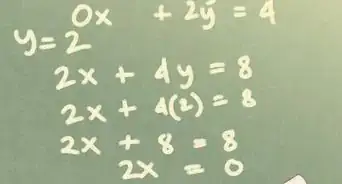 0x + 2y = 4
y = 2
2x + 4y = 8
2x + 4(2) = 8
2x + 8 = 8
2x = 0